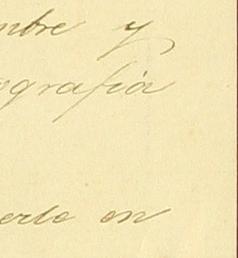 mbre y
ografía
erlo en